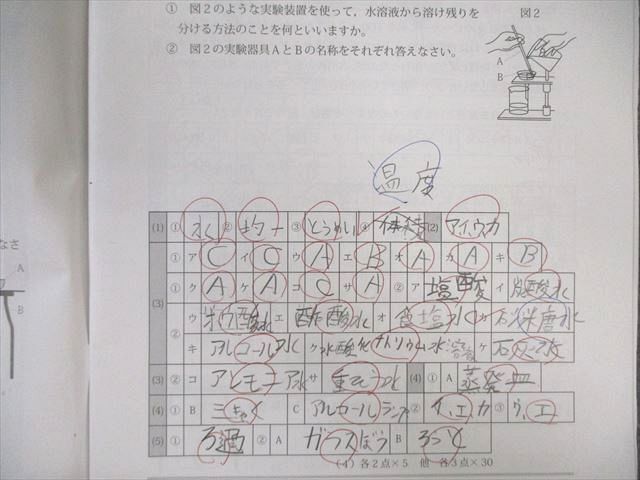 ① 図2のような実験装置を使って，水溶液から溶け残りを
分ける方法のことを何といいますか。
② 図2の実験器具AとBの名称をそれぞれ答えなさい。
図2
A
B
なさ
A
B
温度
(1) ① 水 ② 均一 ③ とうめい ④ 体積 (2) ア,イ,ウ,カ
(3) ① ア C イ C ウ A エ B オ A カ A キ B
① ク A ケ A コ C サ A ② ア 塩酸 イ 炭酸水
② ウ ホウ酸水 エ 酢酸水 オ 食塩水 カ 砂糖水
キ アルコール水 ク 水酸化ナトリウム水溶液 ケ 石灰水
(3) ② コ アンモニア水 サ 重そう水 (4) ① A 蒸発皿
(4) ① B 三きゃく C アルコールランプ ② イ,エ,カ ③ ウ,エ
(5) ① ろ過 ② A ガラスぼう B ろうと
(4) 各2点×5 他 各3点×30